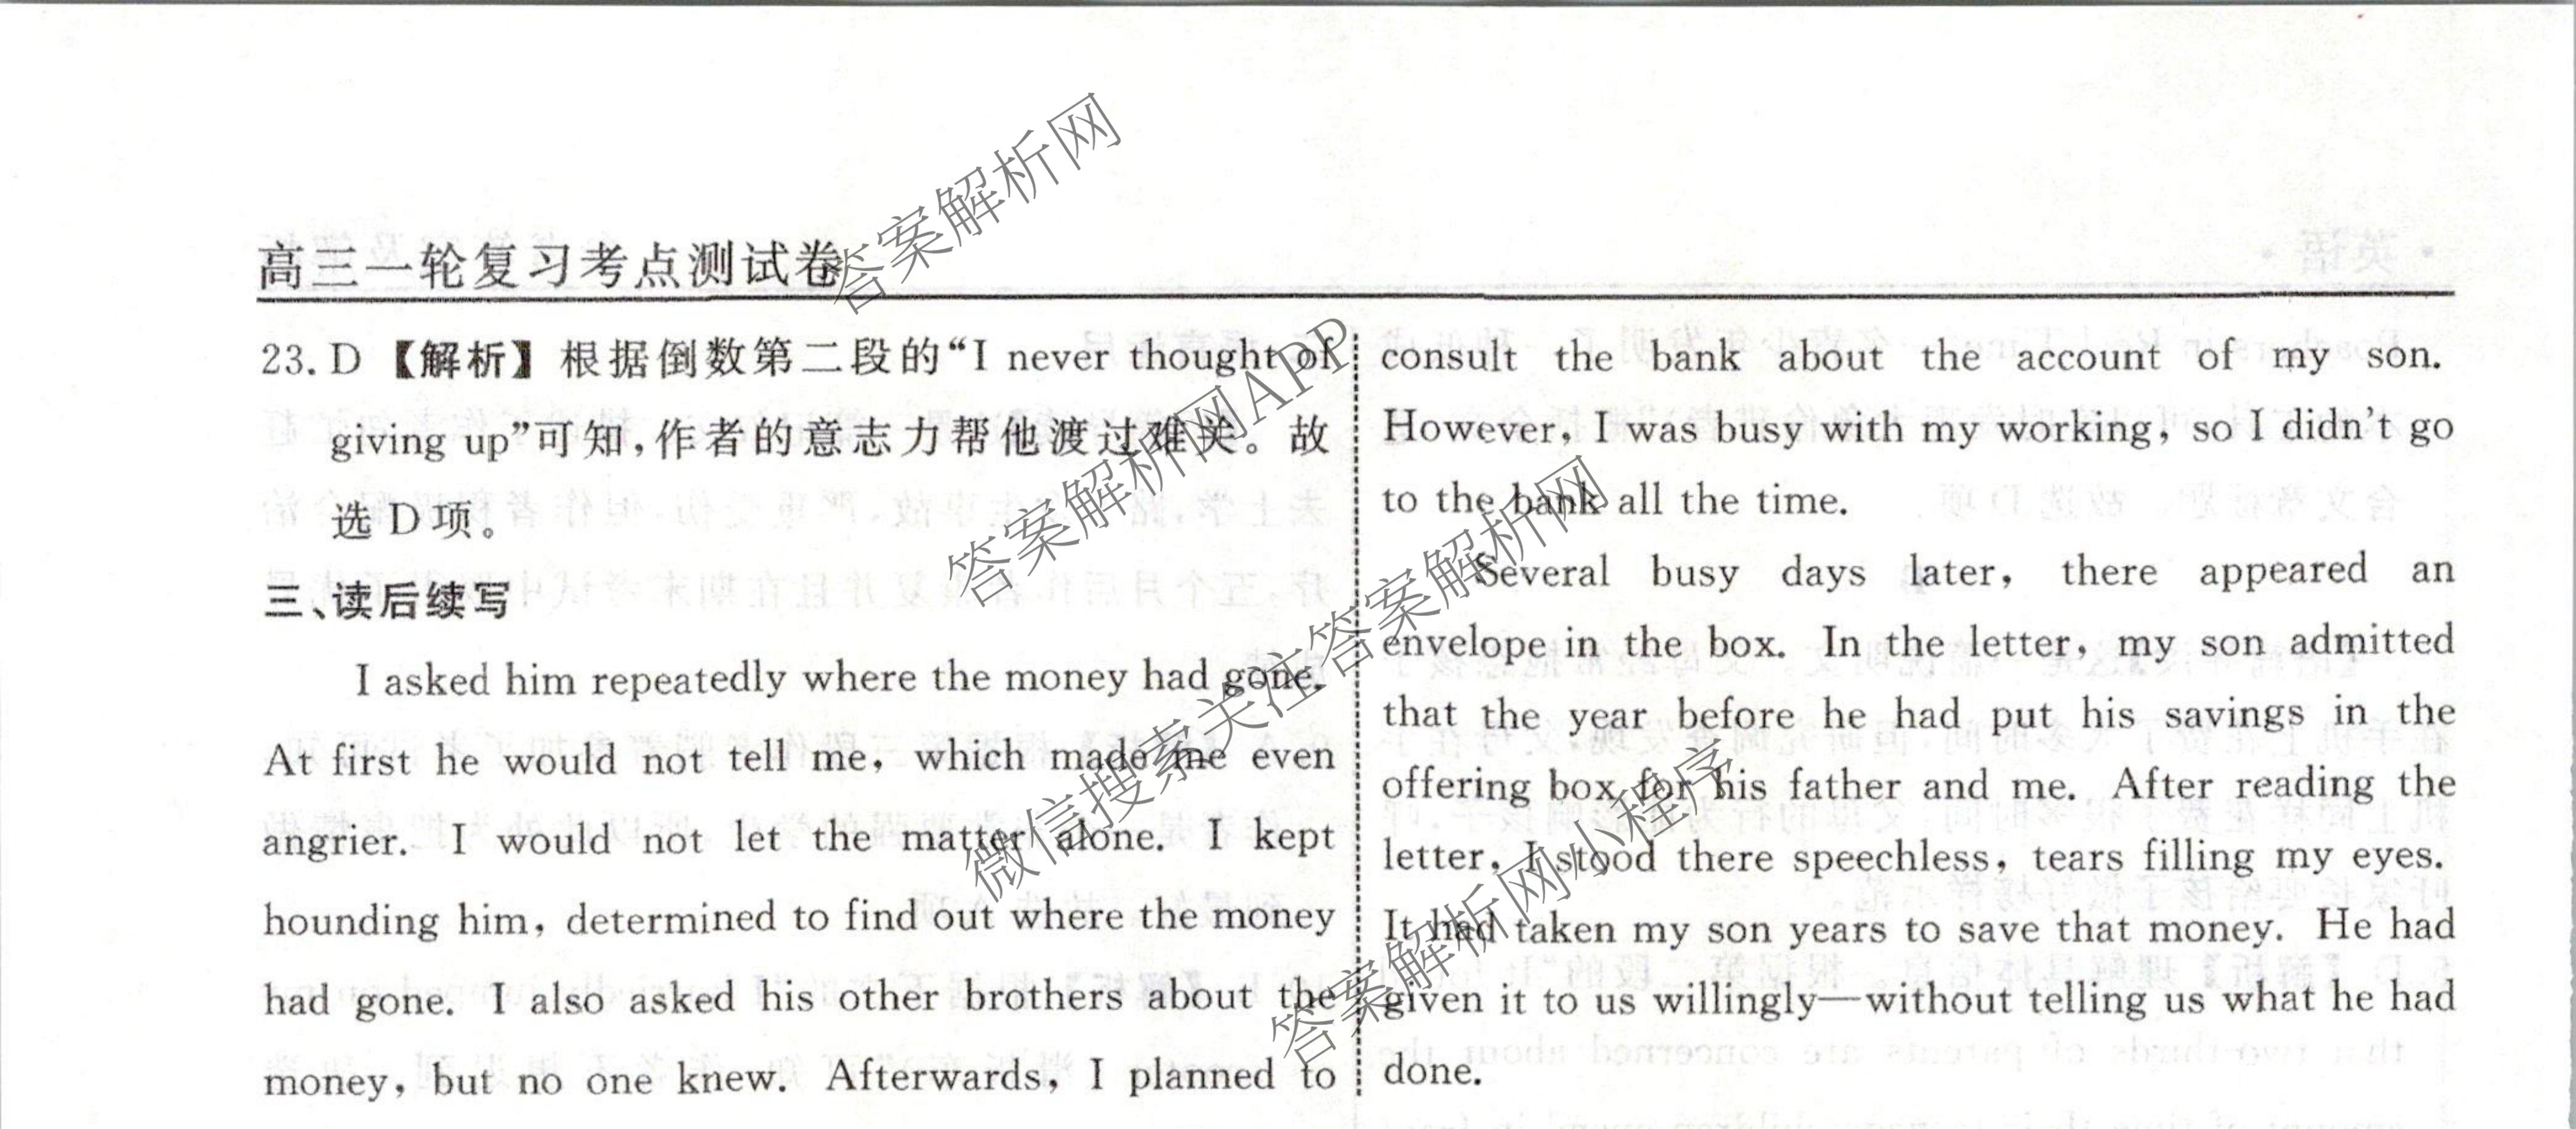 高三一轮复习考点测试卷
23. D 【解析】根据倒数第二段的“I never thought of
giving up”可知,作者的意志力帮他渡过难关。故
选 D 项。
三、读后续写
I asked him repeatedly where the money had gone.
At first he would not tell me, which made me even
angrier. I would not let the matter alone. I kept
hounding him, determined to find out where the money
had gone. I also asked his other brothers about the
money, but no one knew. Afterwards, I planned to
consult the bank about the account of my son.
However, I was busy with my working, so I didn't go
to the bank all the time.
Several busy days later, there appeared an
envelope in the box. In the letter, my son admitted
that the year before he had put his savings in the
offering box for his father and me. After reading the
letter, I stood there speechless, tears filling my eyes.
It had taken my son years to save that money. He had
given it to us willingly—without telling us what he had
done.
答案解析网
答案解析网APP
微信搜索关注答案解析网
答案解析网小程序